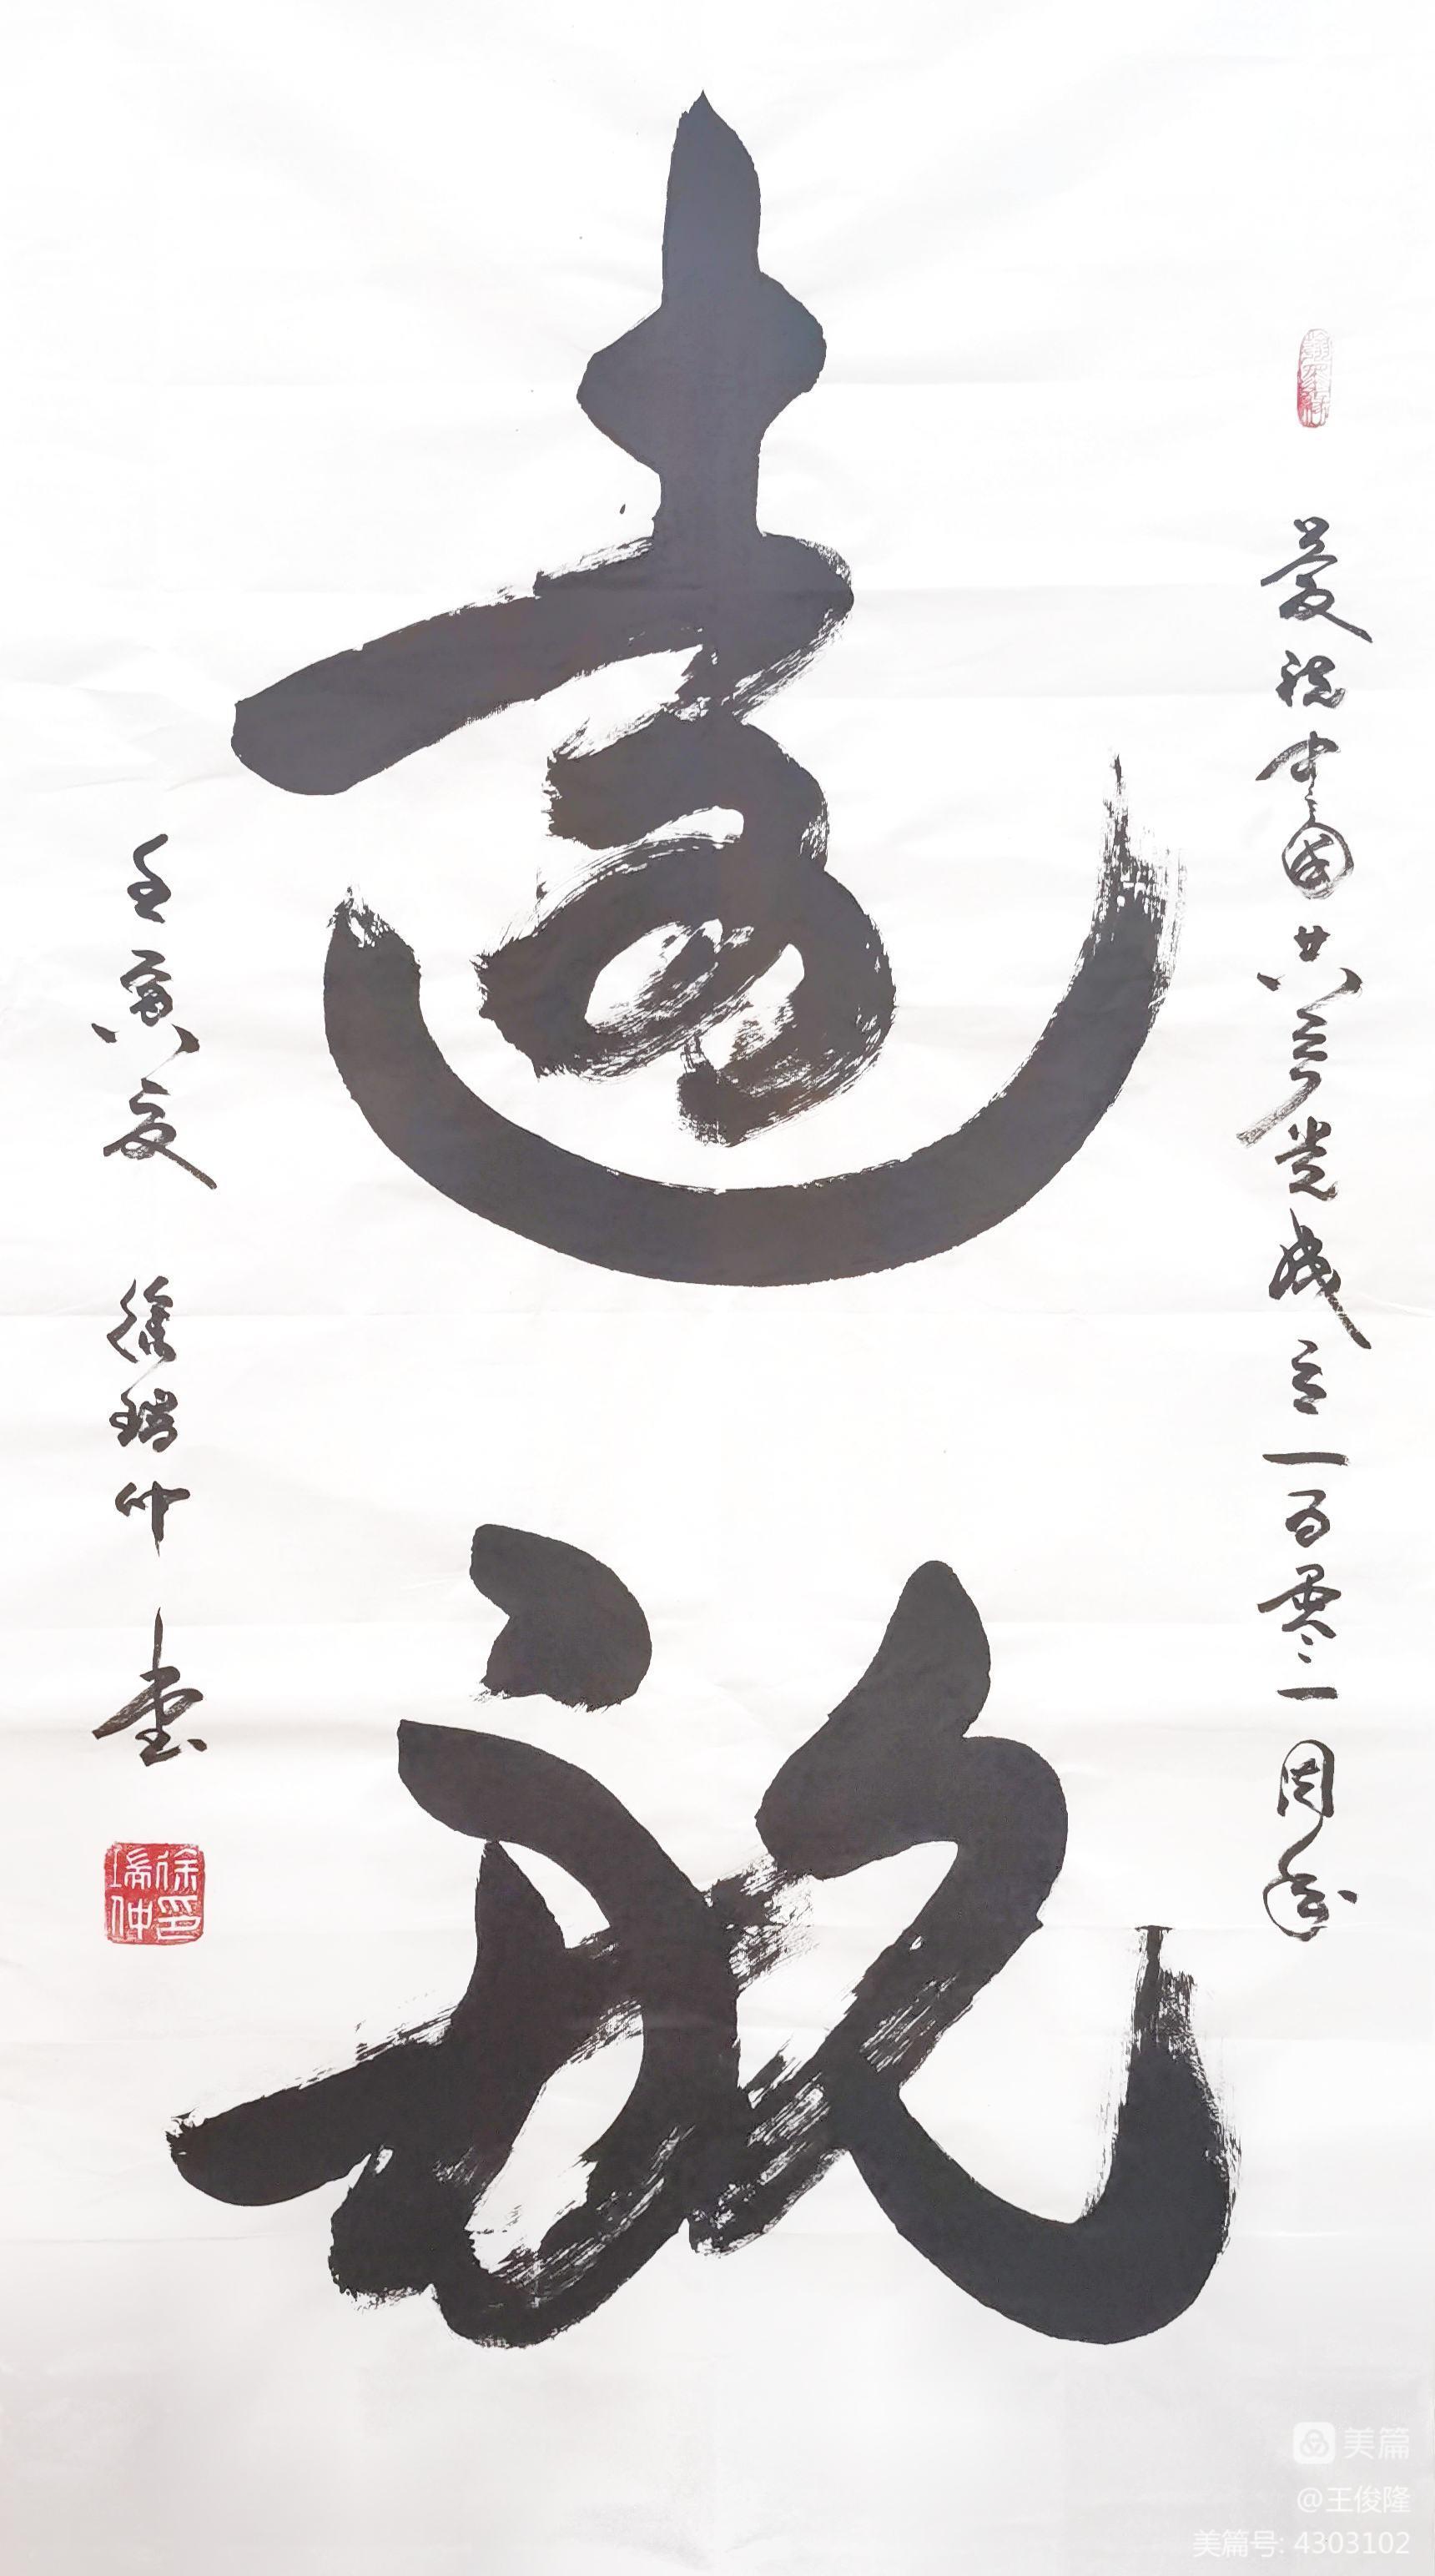 遠航
慶祝中國共產党成立一百零一周年
壬寅夏 徐瑞仲 書
徐印瑞仲
美篇
@王俊隆
美篇号: 4303102